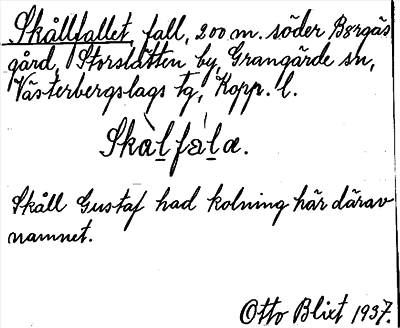 Skållfallet, fall, 200 m. söder Bergås
gård, Storslätten by, Grangärde sn,
Västerbergslags tg, Kopp. l.
Skàlfála.
Skåll Gustaf had kolning här därav
namnet.
Otto Blixt 1937.